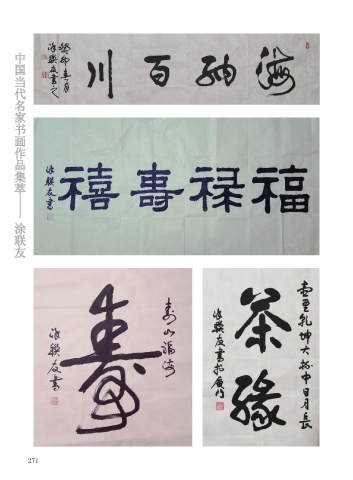 中国当代名家书画作品集萃——涂联友
海纳百川
癸卯春月
涂联友书之
福禄寿禧
涂联友书
寿山福海
寿
涂联友书
壶里乾坤大 杯中日月长
茶缘
涂联友书于厦门
271